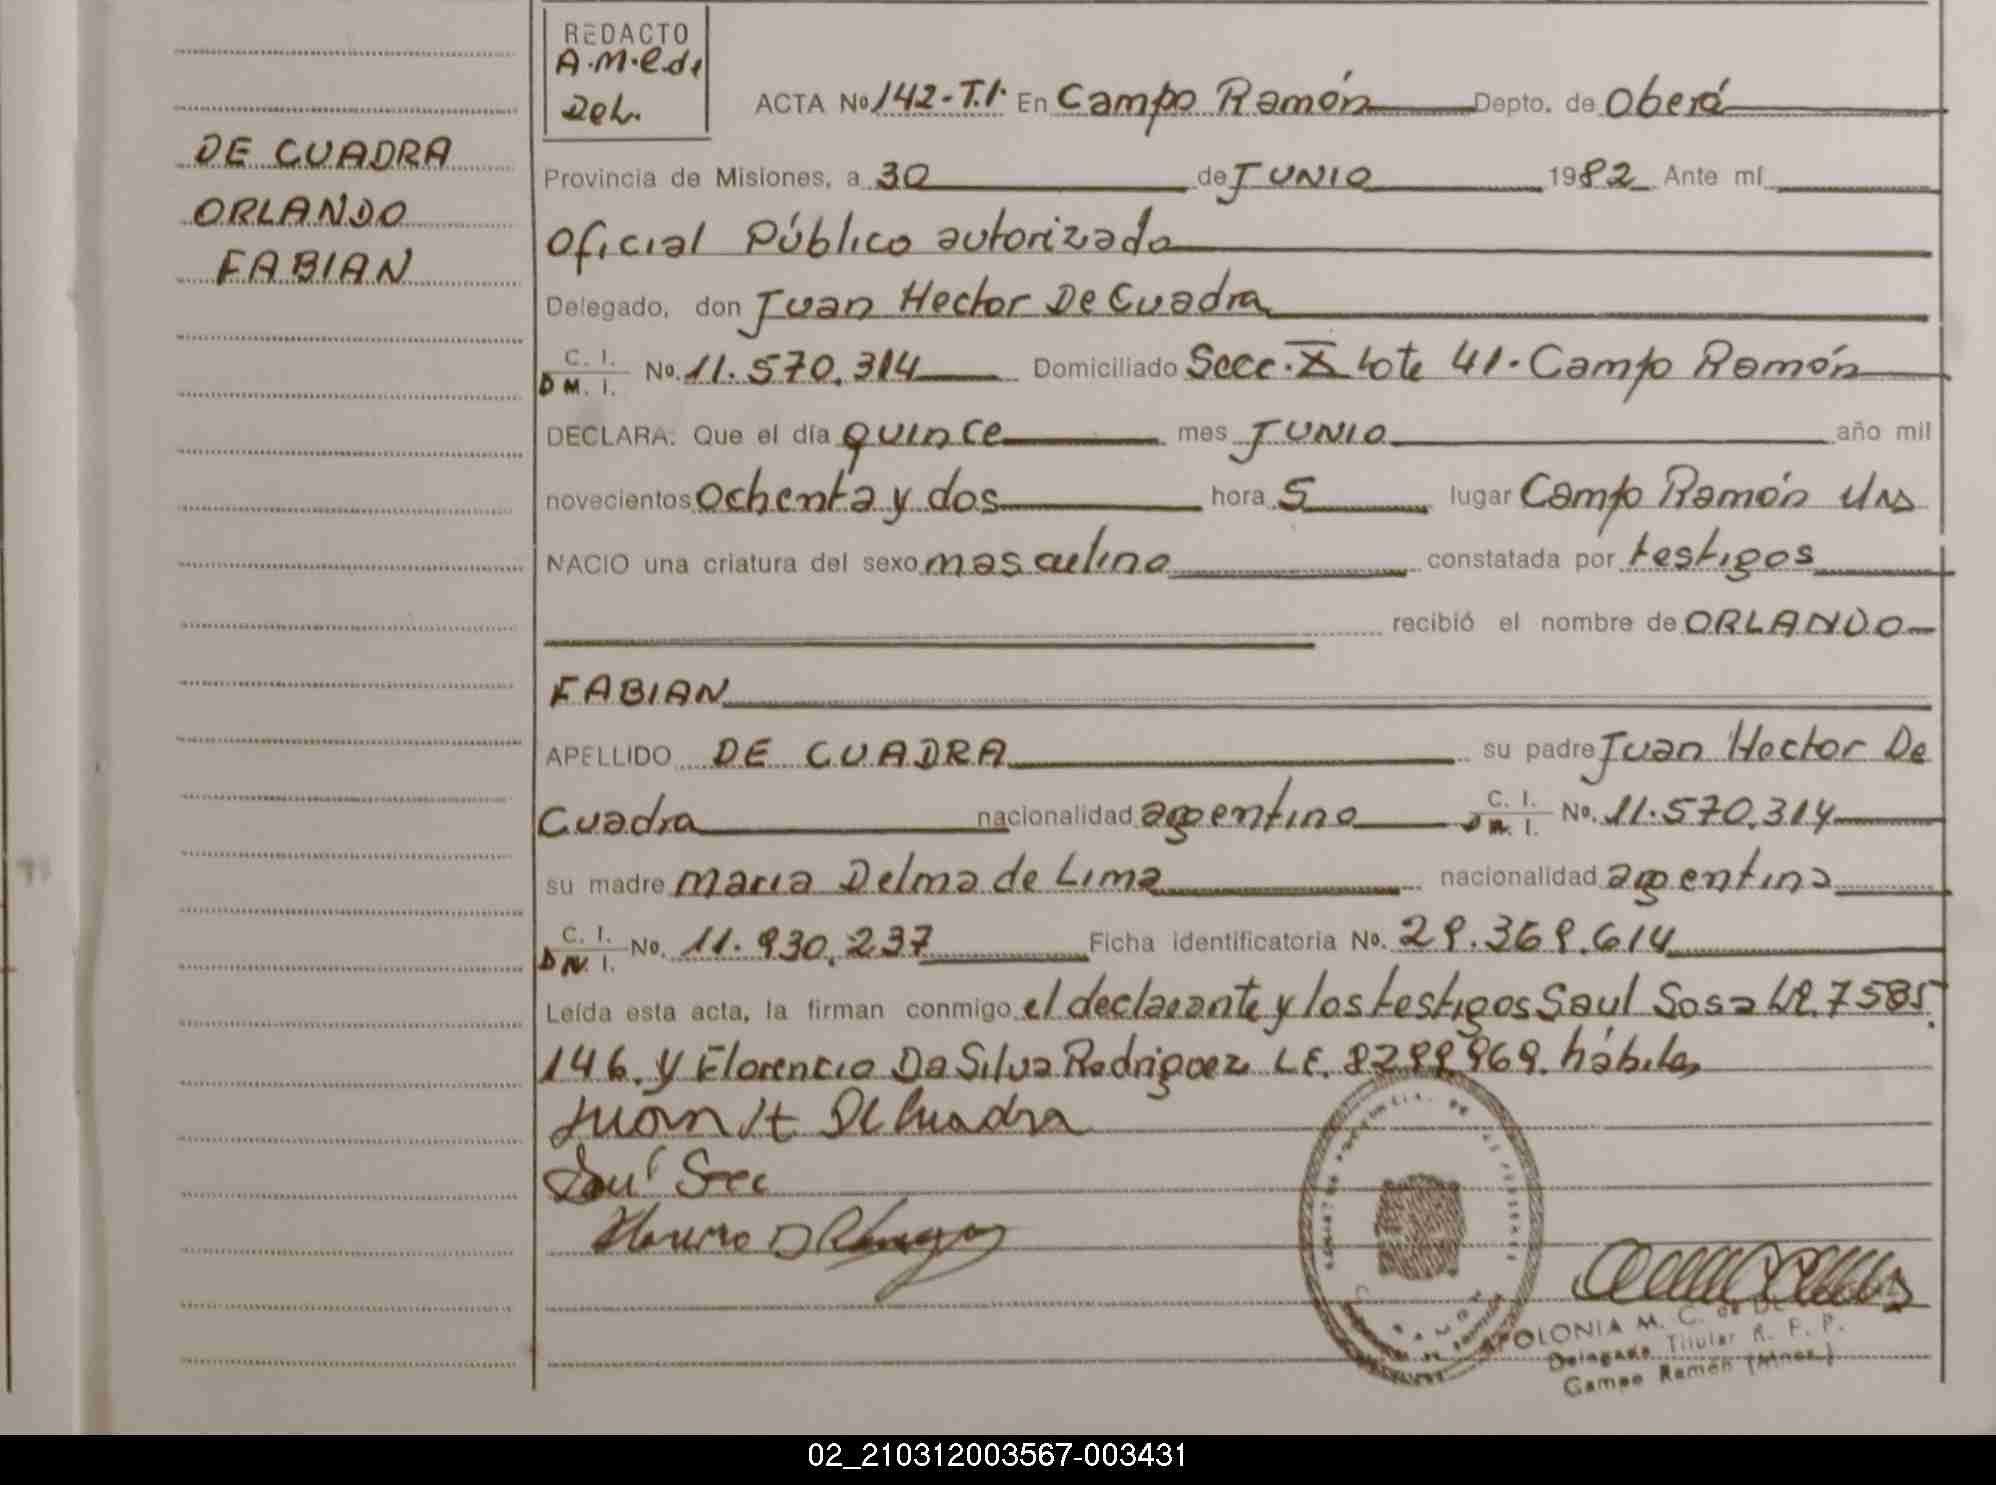 REDACTO
A.M.C.de
Del.
ACTA No 142-T.I. En Campo Ramón Depto. de Oberá
DE CUADRA
ORLANDO
FABIAN
Provincia de Misiones, a 30 de JUNIO 1982 Ante mí
Oficial Público autorizado
Delegado, don Juan Hector De Cuadra
C. I.
D M. I. No. 11.570.314 Domiciliado Secc. X Lote 41. Campo Ramón
DECLARA: Que el día quince mes JUNIO año mil
novecientos ochenta y dos hora 5 lugar Campo Ramón Mns
NACIO una criatura del sexo masculino constatada por testigos
recibió el nombre de ORLANDO
FABIAN
APELLIDO DE CUADRA su padre Juan Hector De
Cuadra nacionalidad argentino C. I. No. 11.570.314
su madre Maria Delma de Lima nacionalidad argentina
C. I.
D N. I. No. 11.930.237 Ficha identificatoria No. 29.369.614
Leída esta acta, la firman conmigo el declarante y los testigos Saul Sosa LE. 7585
146. y Florencio Da Silva Rodriguez LE. 8299969. hábiles
Juan H De Cuadra
APOLONIA M. C. de
Delegada Titular R. P. P.
Campo Ramón (Mnes.)
02_210312003567-003431